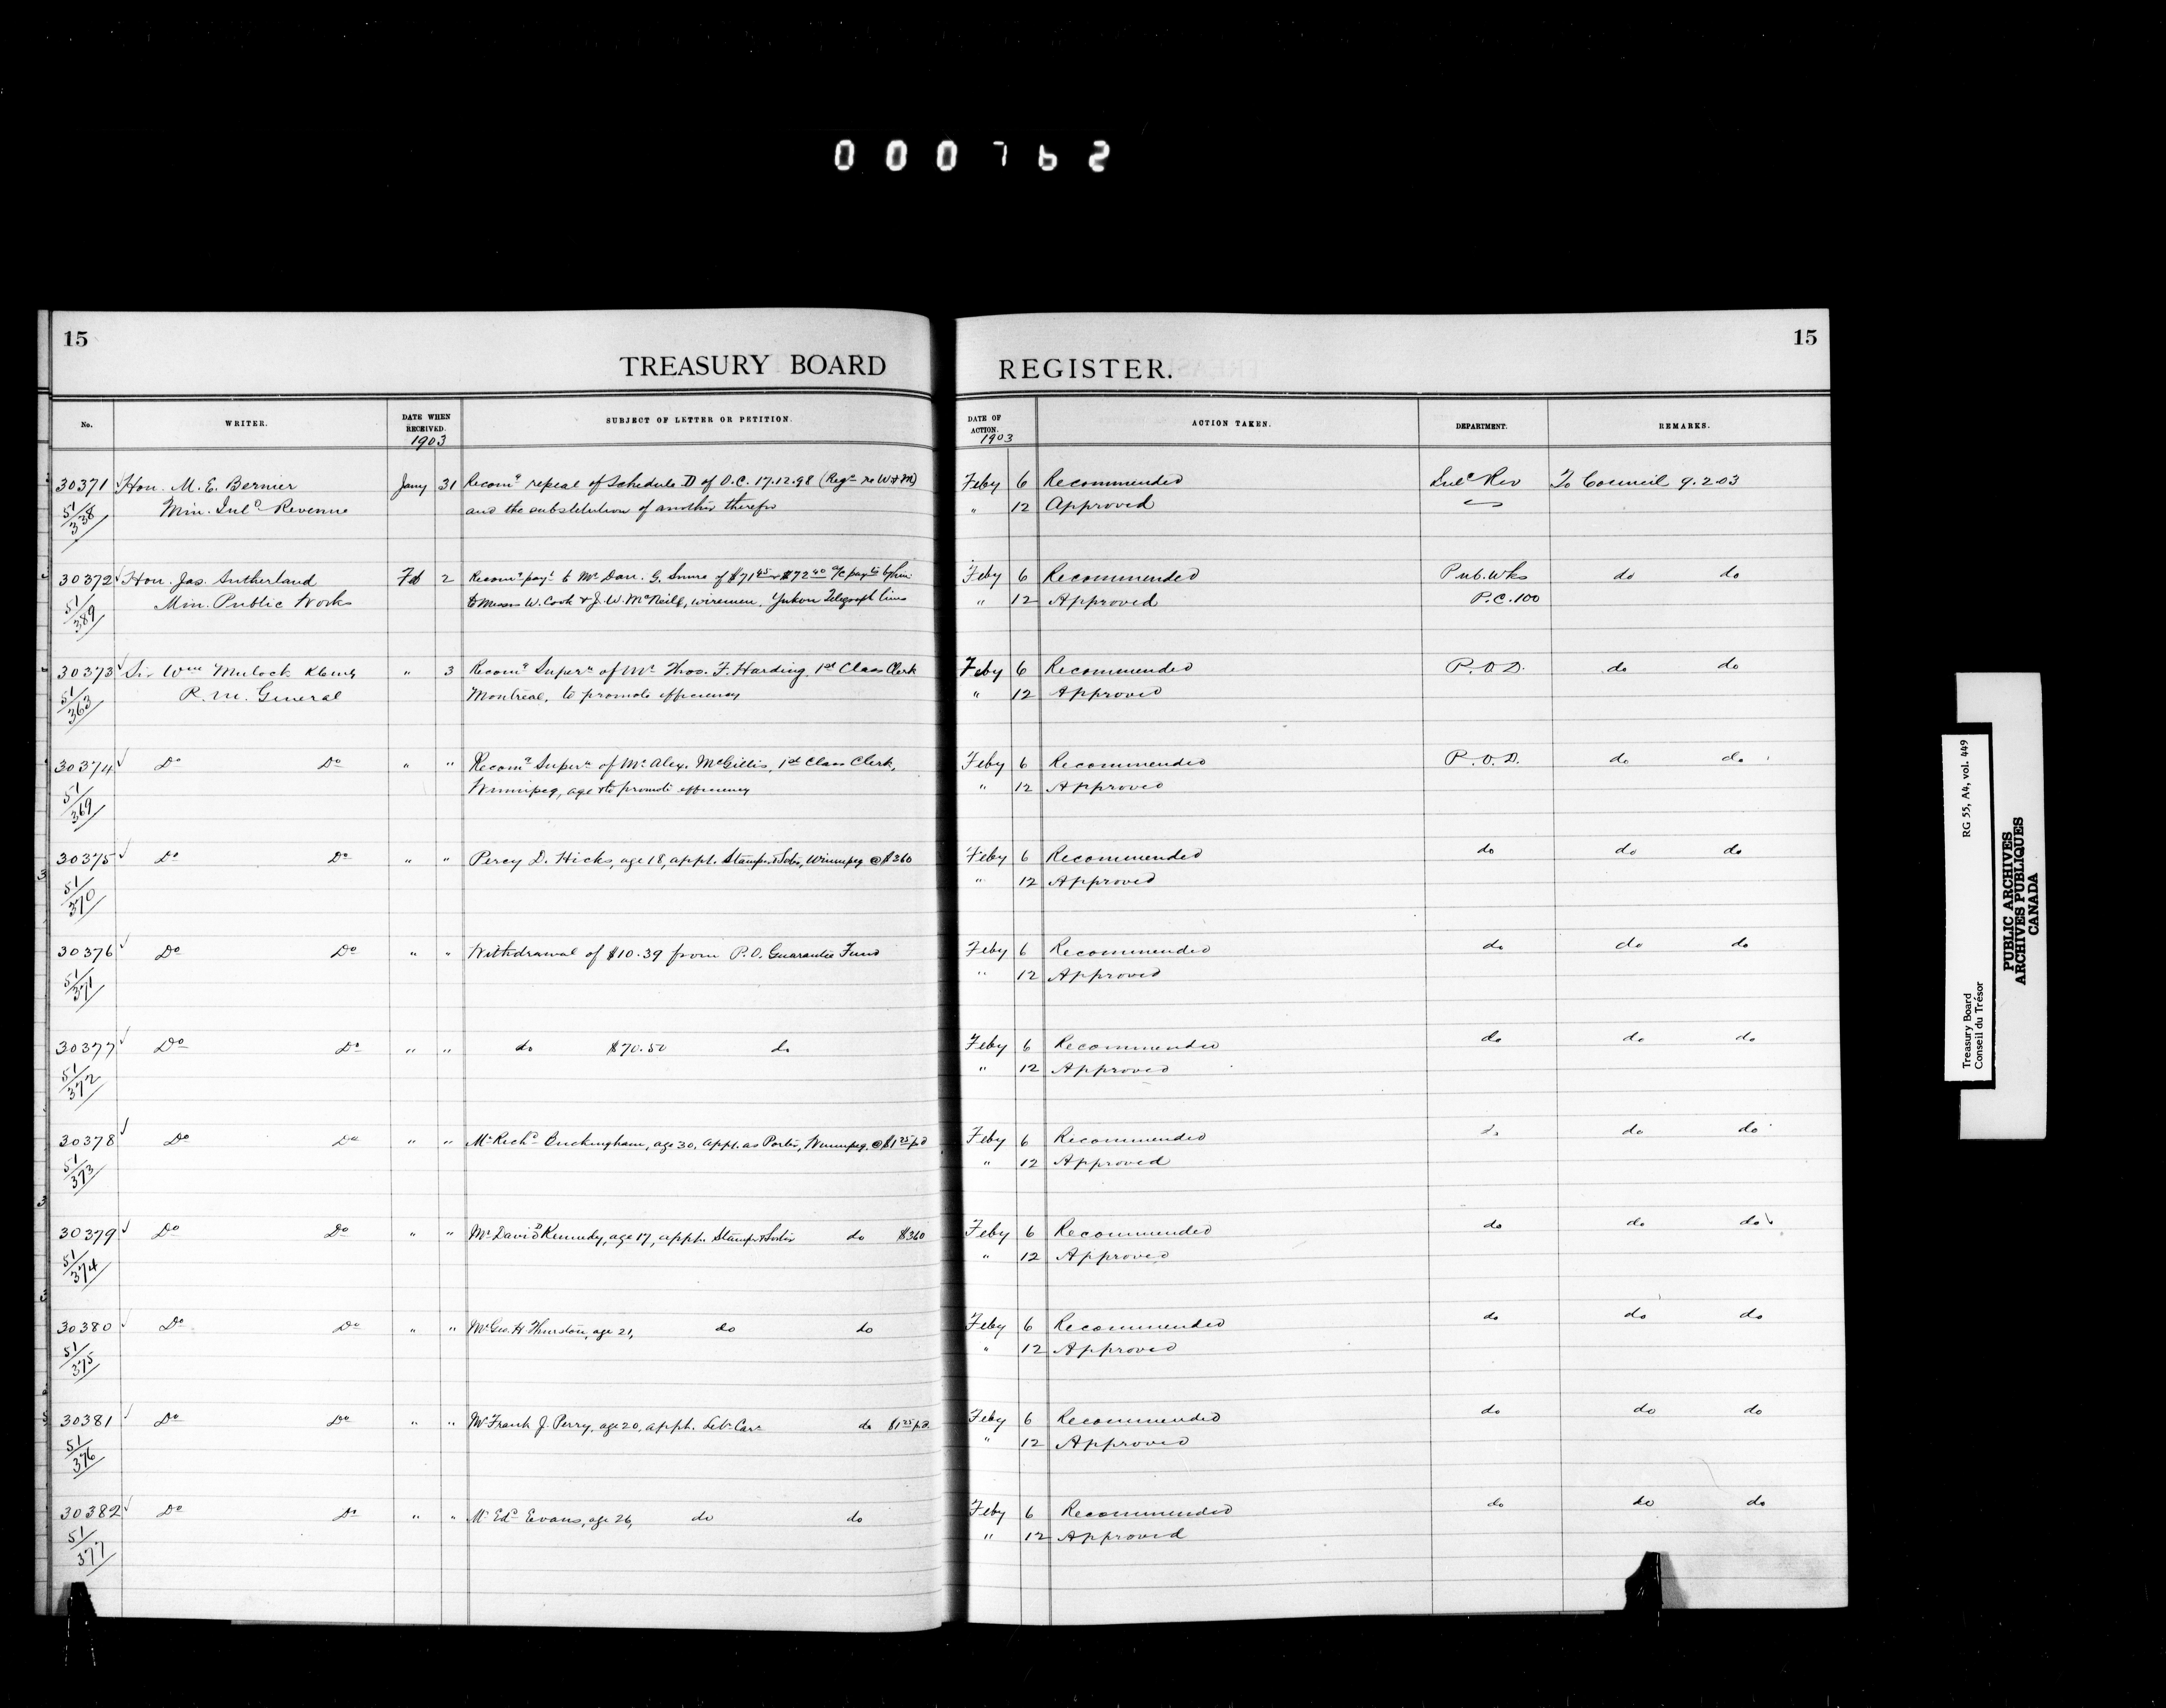 000762
15
15
TREASURY BOARD REGISTER.
No. WRITER. DATE WHEN RECEIVED. SUBJECT OF LETTER OR PETITION. DATE OF ACTION. ACTION TAKEN. DEPARTMENT. REMARKS.
1903 1903
30371 Hon. M. E. Bernier Jany 31 Recomg repeal of Schedule D of O.C. 17.12.98 (Regns re W & M) Feby 6 Recommended Inld Rev To Council 9.2.03
51/338 Min. Inld Revenue and the substitution of another therefor " 12 Approved
30372 Hon. Jas. Sutherland Feb 2 Recomg payt to Mr Dan. G. of $71 45 & $72 40 a/c payts by him Feby 6 Recommended Pub. Wks do do
51/389 Min. Public Works to Messrs W. Cook & J. W. McNeill, wiremen, Yukon Telegraph lines " 12 Approved P.C. 100
30373 Sir Wm Mulock KCMG " 3 Recomg Supern of Mr Thos. F. Harding, 1st Class Clerk Feby 6 Recommended P.O.D. do do
51/363 P. M. General Montreal, to promote efficiency " 12 Approved
30374 Do Do " " Recomg Supern of Mr Alex. McGillis, 1st Class Clerk, Feby 6 Recommended P.O.D. do do
51/369 Winnipeg, age & to promote efficiency " 12 Approved
30375 Do Do " " Percy D. Hicks, age 18, appt. Stampr & Sortr, Winnipeg @ $360 Feby 6 Recommended do do do
51/370 " 12 Approved
30376 Do Do " " Withdrawal of $10.39 from P.O. Guarantee Fund Feby 6 Recommended do do do
51/371 " 12 Approved
30377 Do Do " " do $70.50 do Feby 6 Recommended do do do
51/372 " 12 Approved
30378 Do Do " " Mr Richd Buckingham, age 30, appt. as Porter, Winnipeg, @ $1 25 pd Feby 6 Recommended do do do
51/373 " 12 Approved
30379 Do Do " " Mr David Kennedy, age 17, appt. Stampr & Sorter do $360 Feby 6 Recommended do do do
51/374 " 12 Approved
30380 Do Do " " Mr Geo. H Thurston, age 21, do do Feby 6 Recommended do do do
51/375 " 12 Approved
30381 Do Do " " Mr Frank J. Perry, age 20, appt. Letr Carr do $1 25 pd Feby 6 Recommended do do do
51/376 " 12 Approved
30382 Do Do " " Mr Edd Evans, age 26, do do Feby 6 Recommended do do do
51/377 " 12 Approved
Treasury Board RG 55, A4, vol. 449
Conseil du Trésor
PUBLIC ARCHIVES
ARCHIVES PUBLIQUES
CANADA